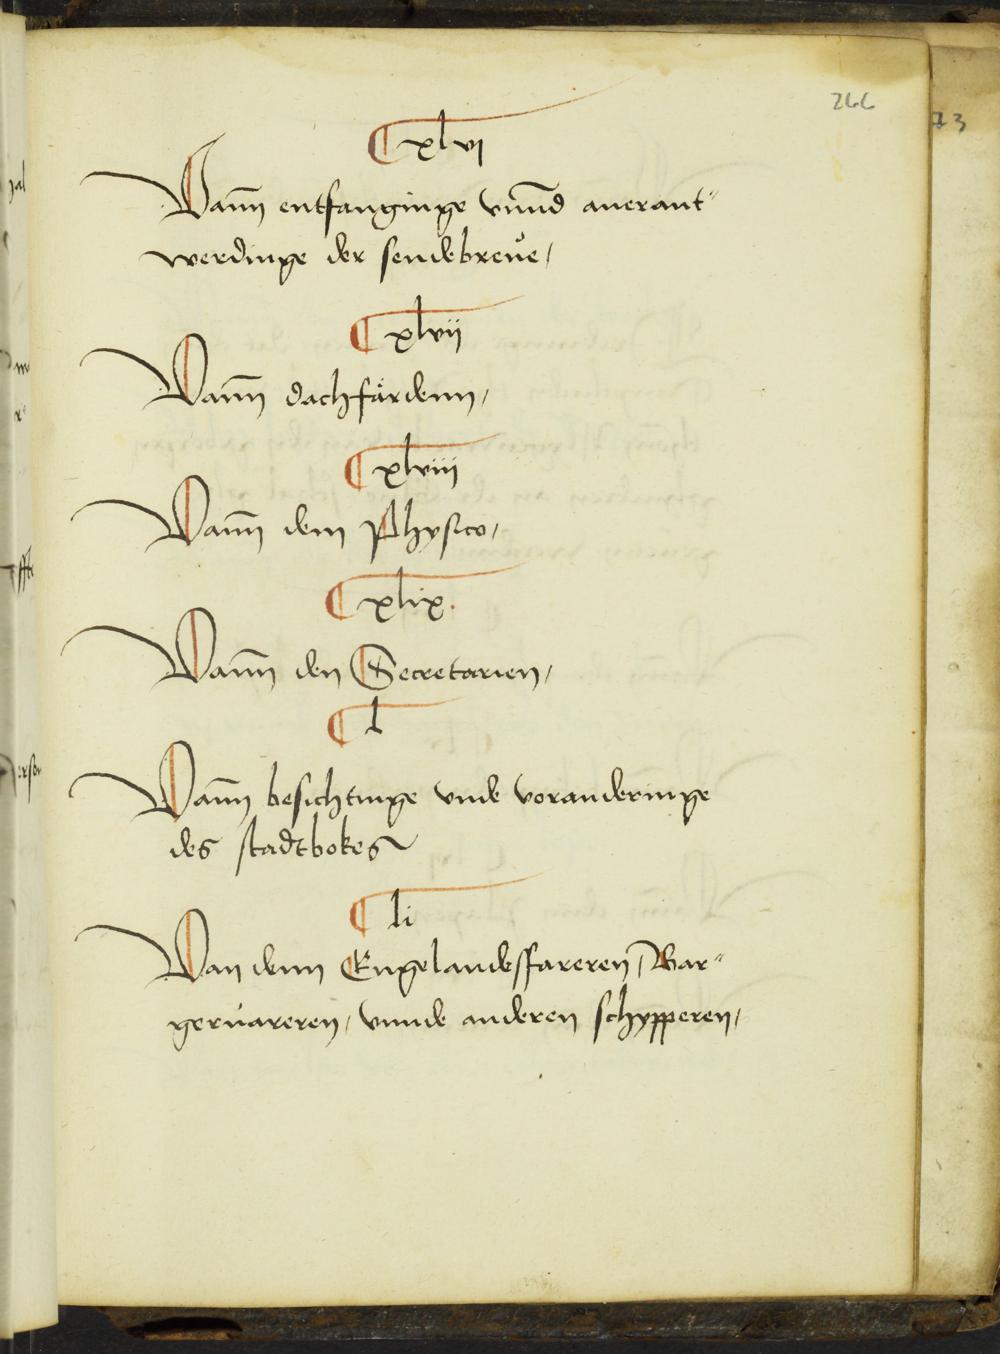 266
73
¶ xlvi
Vann̄ entfanginge vnnd auerant"
werdinge der sendebreue,
¶ xlvii
Vann̄ dachfardenn,
¶ xlviii
Vann̄ dem Physico,
¶ xlix.
Vann̄ den Secretarien,
¶ l
Vann̄ besichtinge vnde voranderinge
des stadtbokes
¶ li
Van denn Engelandessfareren, Bar"
geruareren, vnnde anderen schypperen,